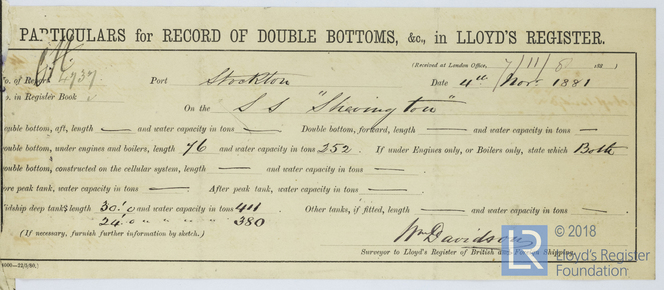 PARTICULARS for RECORD OF DOUBLE BOTTOMS, &c., in LLOYD'S REGISTER.
(Received at London Office, 7/11/8 188 )
No. of Report 4737 Port Stockton Date 4th Nov. 1881
No. in Register Book On the S S "Shavington"
ouble bottom, aft, length — and water capacity in tons — Double bottom, forward, length — and water capacity in tons —
ouble bottom, under engines and boilers, length 76 and water capacity in tons 252. If under Engines only, or Boilers only, state which Both
ouble bottom, constructed on the cellular system, length — and water capacity in tons —
ore peak tank, water capacity in tons —. After peak tank, water capacity in tons —
idship deep tanks length 30'.0 and water capacity in tons 411 Other tanks, if fitted, length — and water capacity in tons —.
24'.0 " " " " " 380
(If necessary, furnish further information by sketch.) Wm Davidson
Surveyor to Lloyd's Register of British and Foreign Shipping.
6000—22/9/80.)
© 2018
LR
Lloyd's Register
Foundation